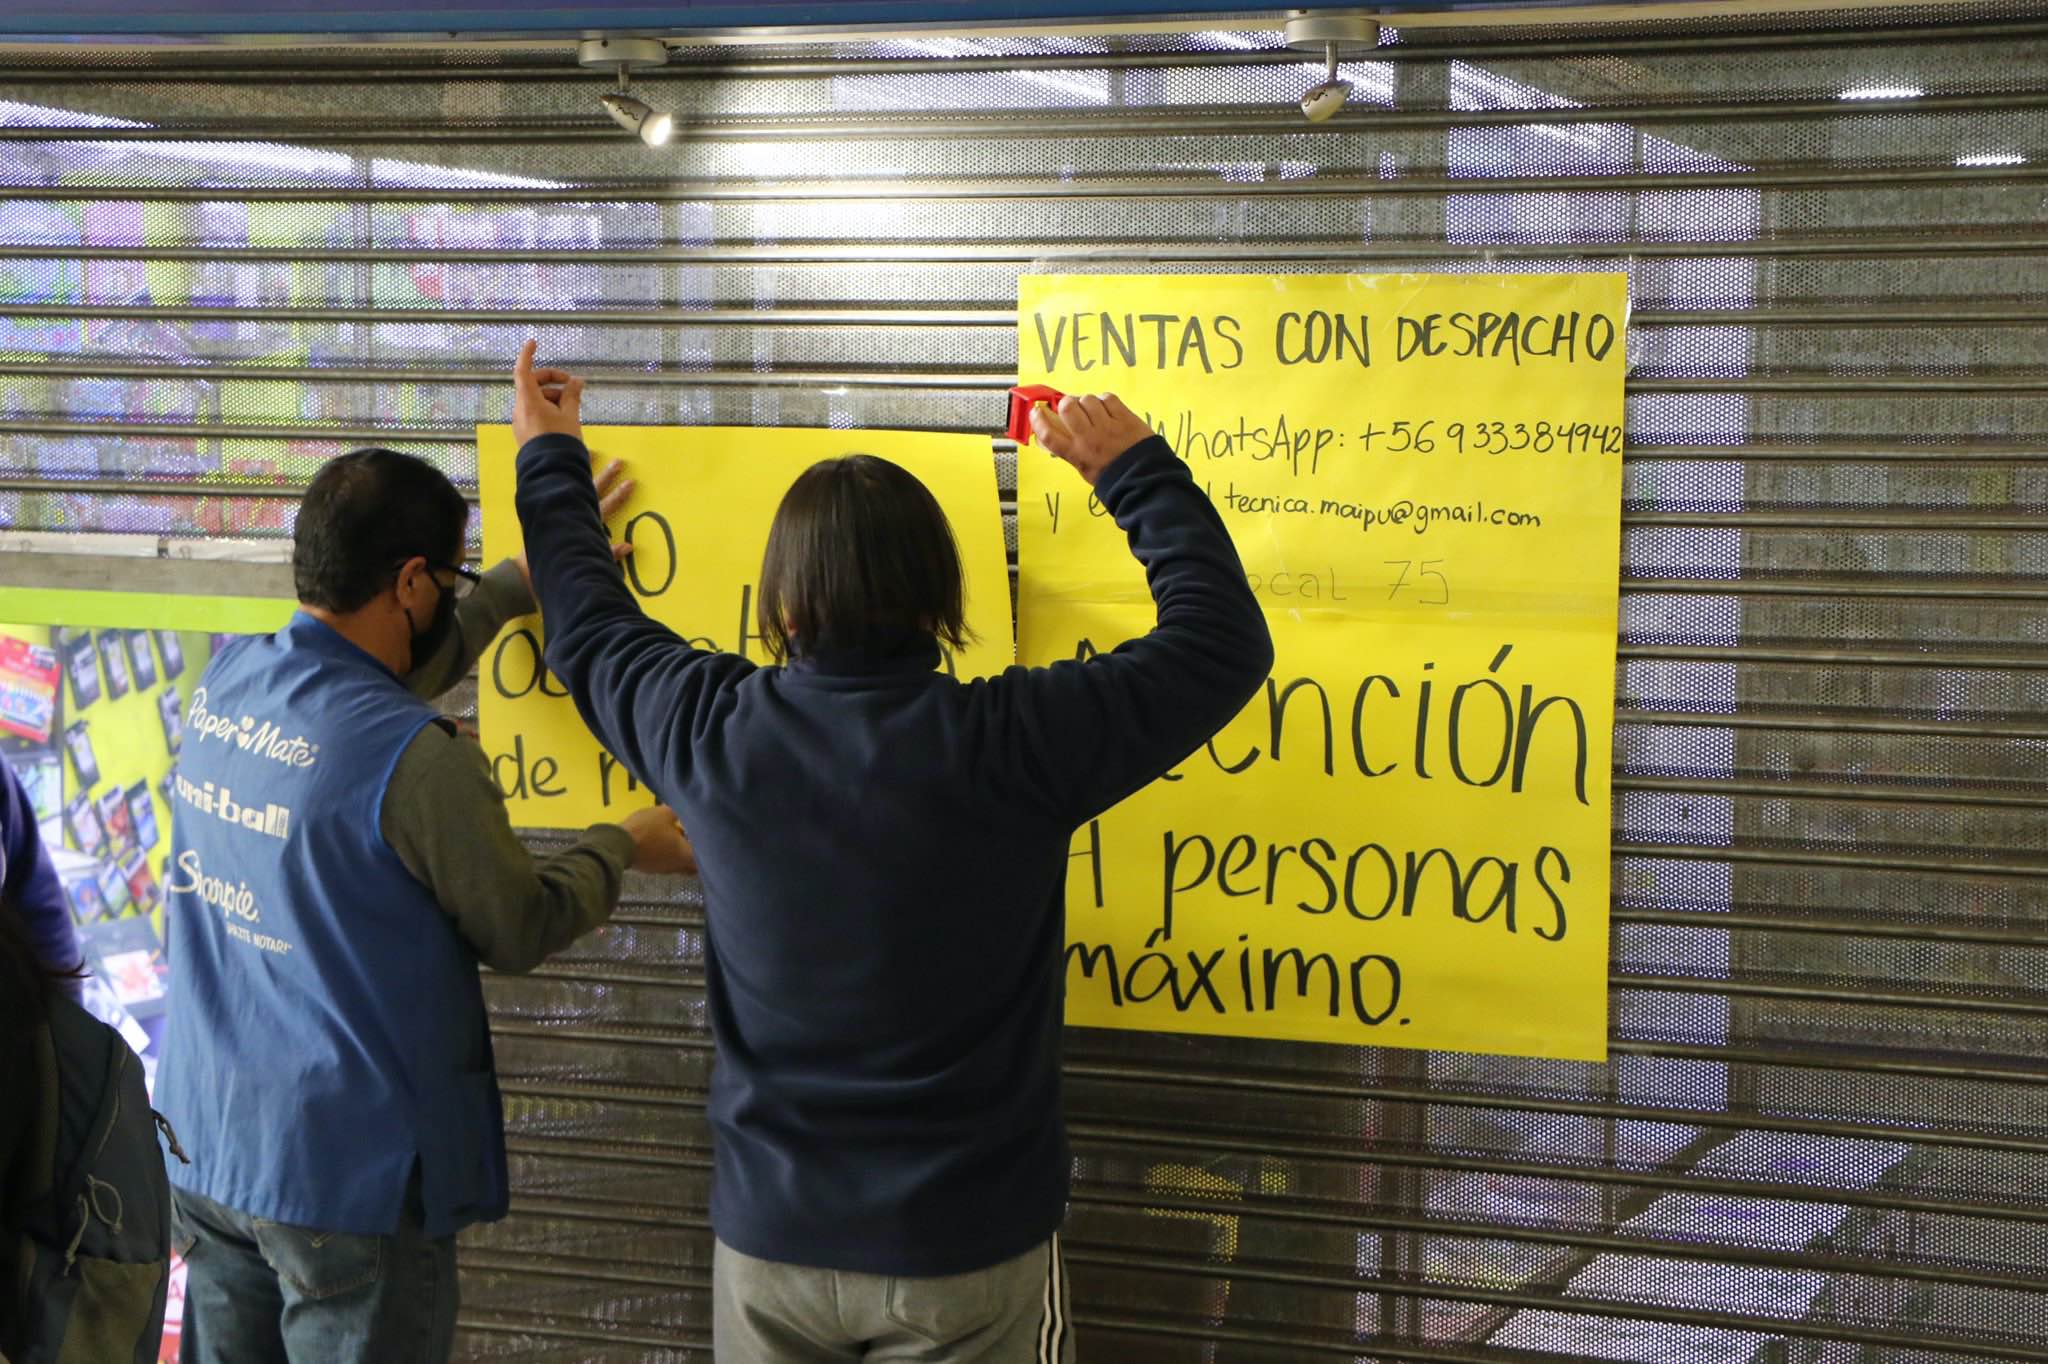 VENTAS CON DESPACHO
WhatsApp: +56 9 33384942
y
tecnica.maipu@gmail.com
Local 75
Atención
4 personas
máximo.
de
Paper Mate®
uni-ball
Sharpie.
¡HAZTE NOTAR!™